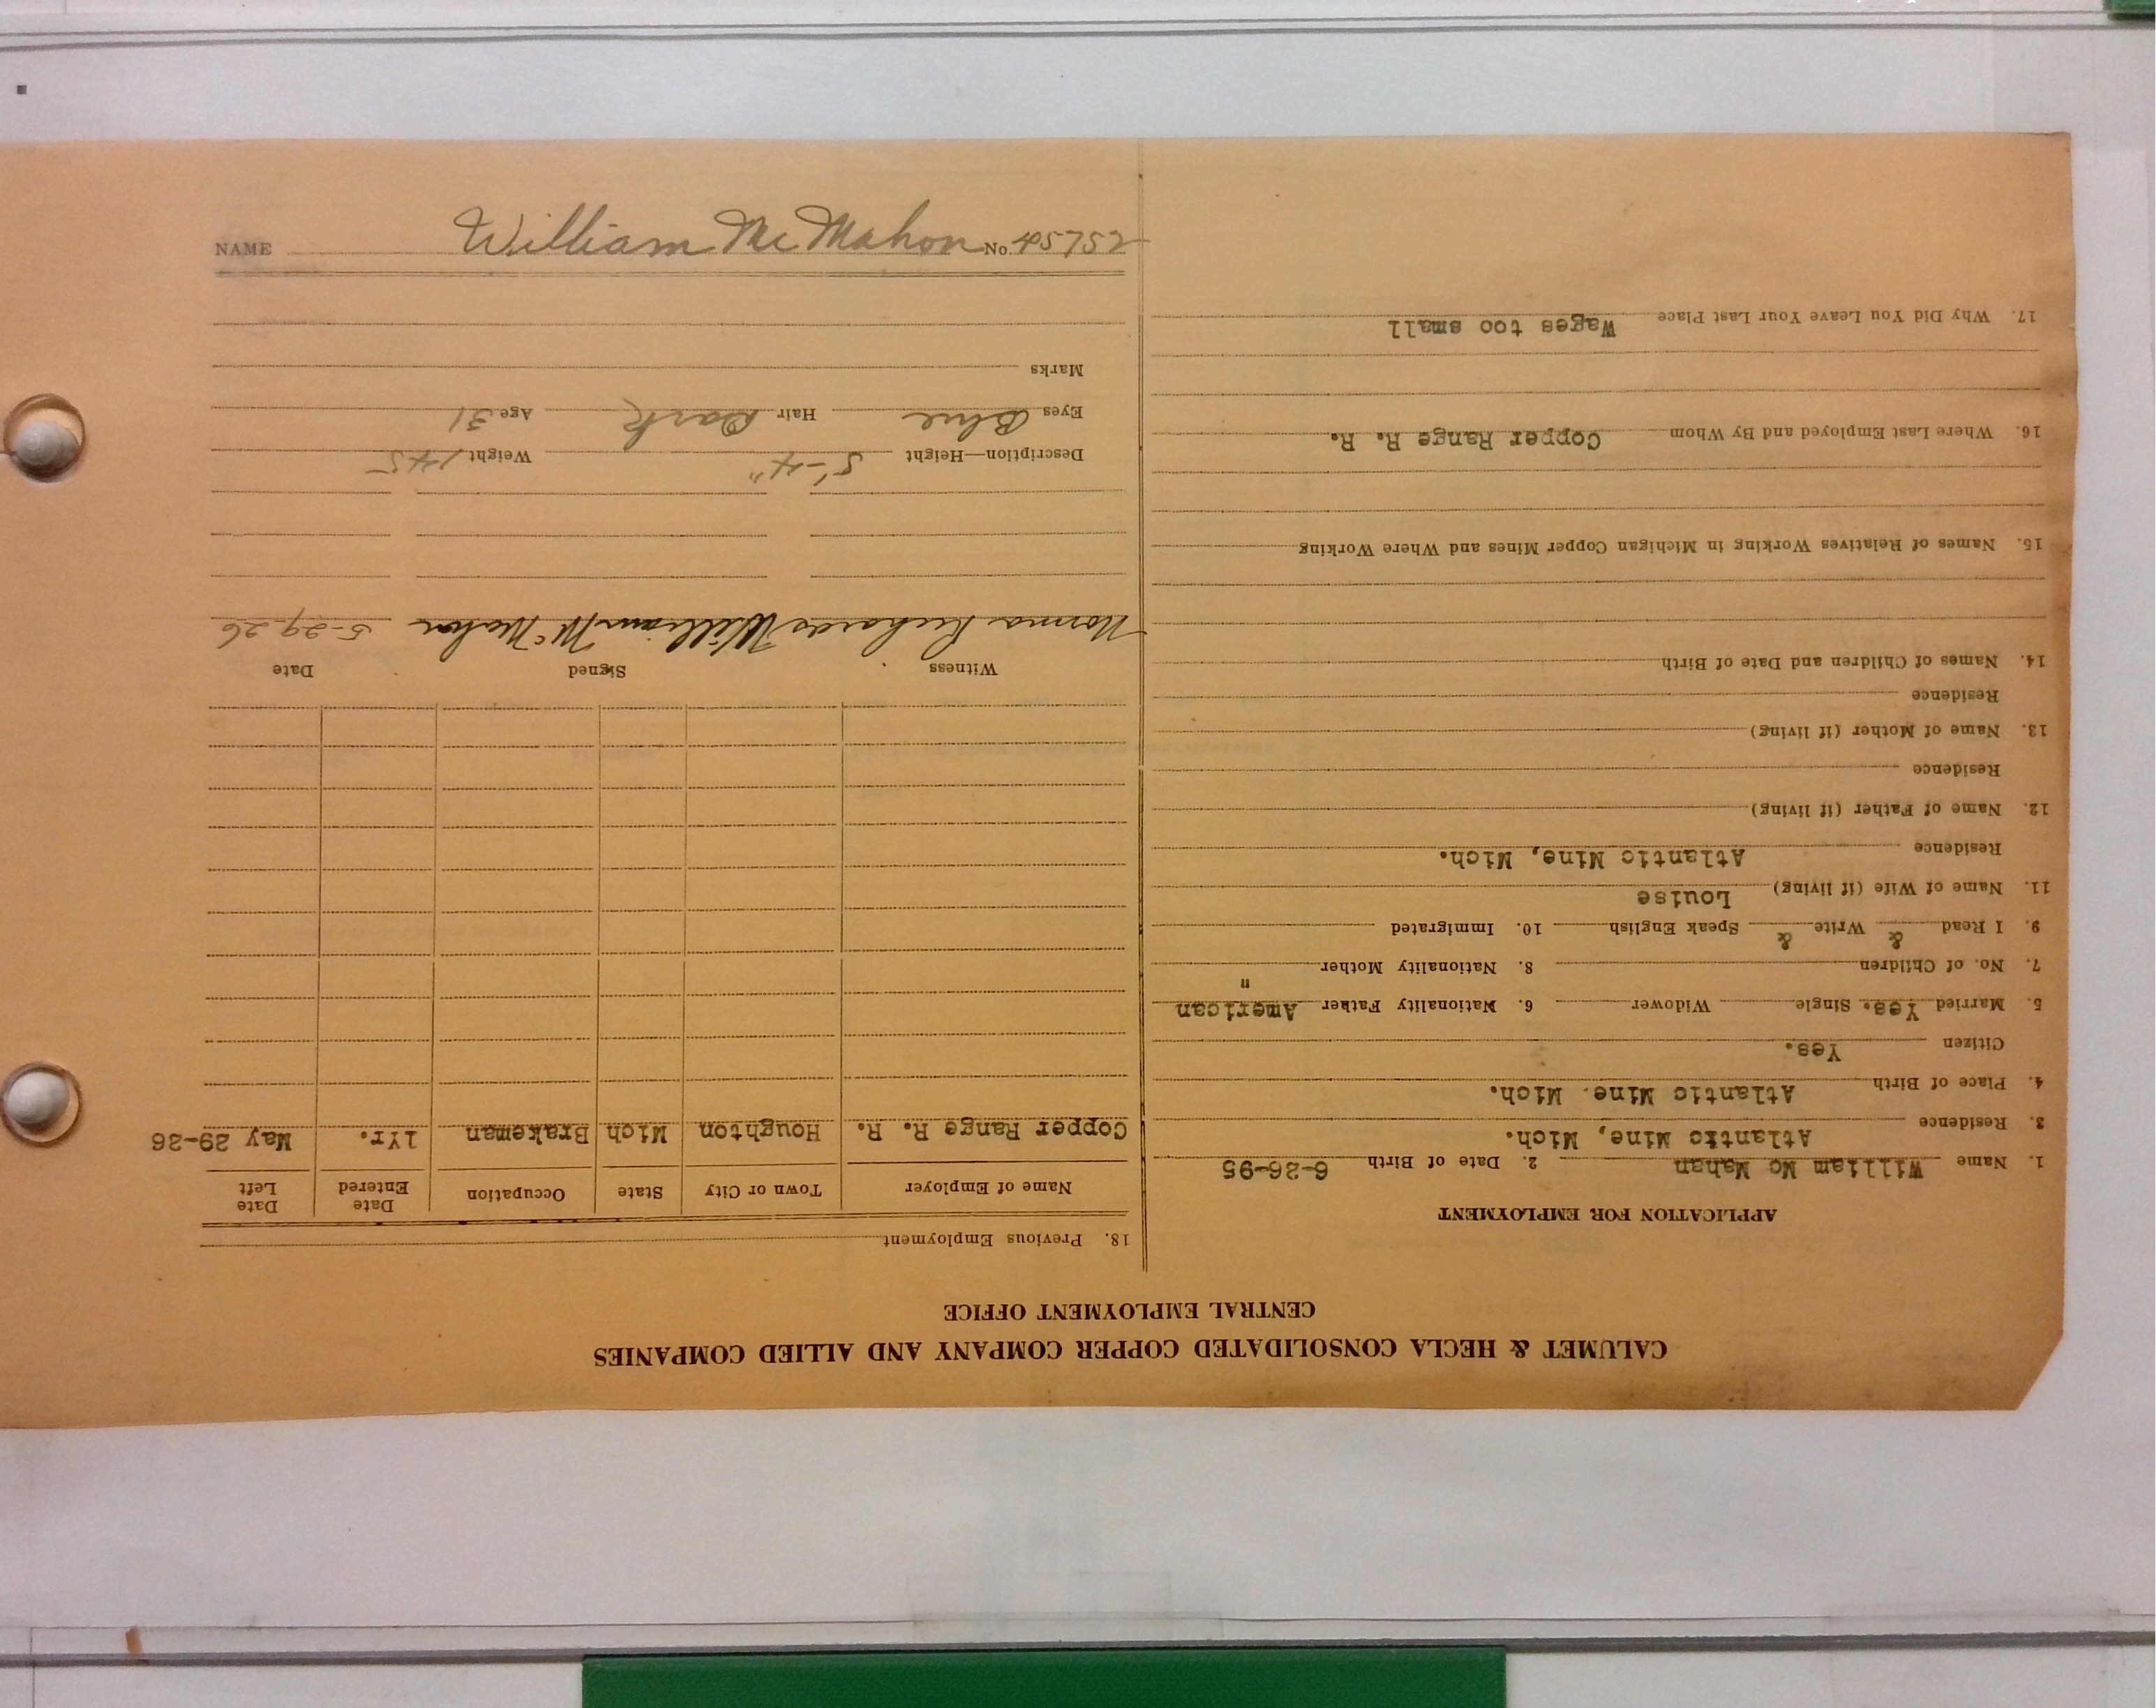 CALUMET & HECLA CONSOLIDATED COPPER COMPANY AND ALLIED COMPANIES
CENTRAL EMPLOYMENT OFFICE
APPLICATION FOR EMPLOYMENT
1. Name William Mc Mahan 2. Date of Birth 6-26-95
3. Residence Atlantic Mine, Mich.
4. Place of Birth Atlantic Mine. Mich.
Citizen Yes.
5. Married Yes. Single Widower 6. Nationality Father American
7. No. of Children 8. Nationality Mother "
9. I Read & Write & Speak English 10. Immigrated
11. Name of Wife (if living) Louise
Residence Atlantic Mine, Mich.
12. Name of Father (if living)
Residence
13. Name of Mother (if living)
Residence
14. Names of Children and Date of Birth
15. Names of Relatives Working in Michigan Copper Mines and Where Working
16. Where Last Employed and By Whom Copper Range R. R.
17. Why Did You Leave Your Last Place Wages too small
18. Previous Employment
Name of Employer Town or City State Occupation Date Entered Date Left
Copper Range R. R. Houghton Mich Brakeman 1Yr. May 29-26
Witness Signed Date
Norma Richards William McMahon 5-29-26
Description—Height 5'-4" Weight 145
Eyes Blue Hair Dark Age 31
Marks
NAME William McMahon No. 45752